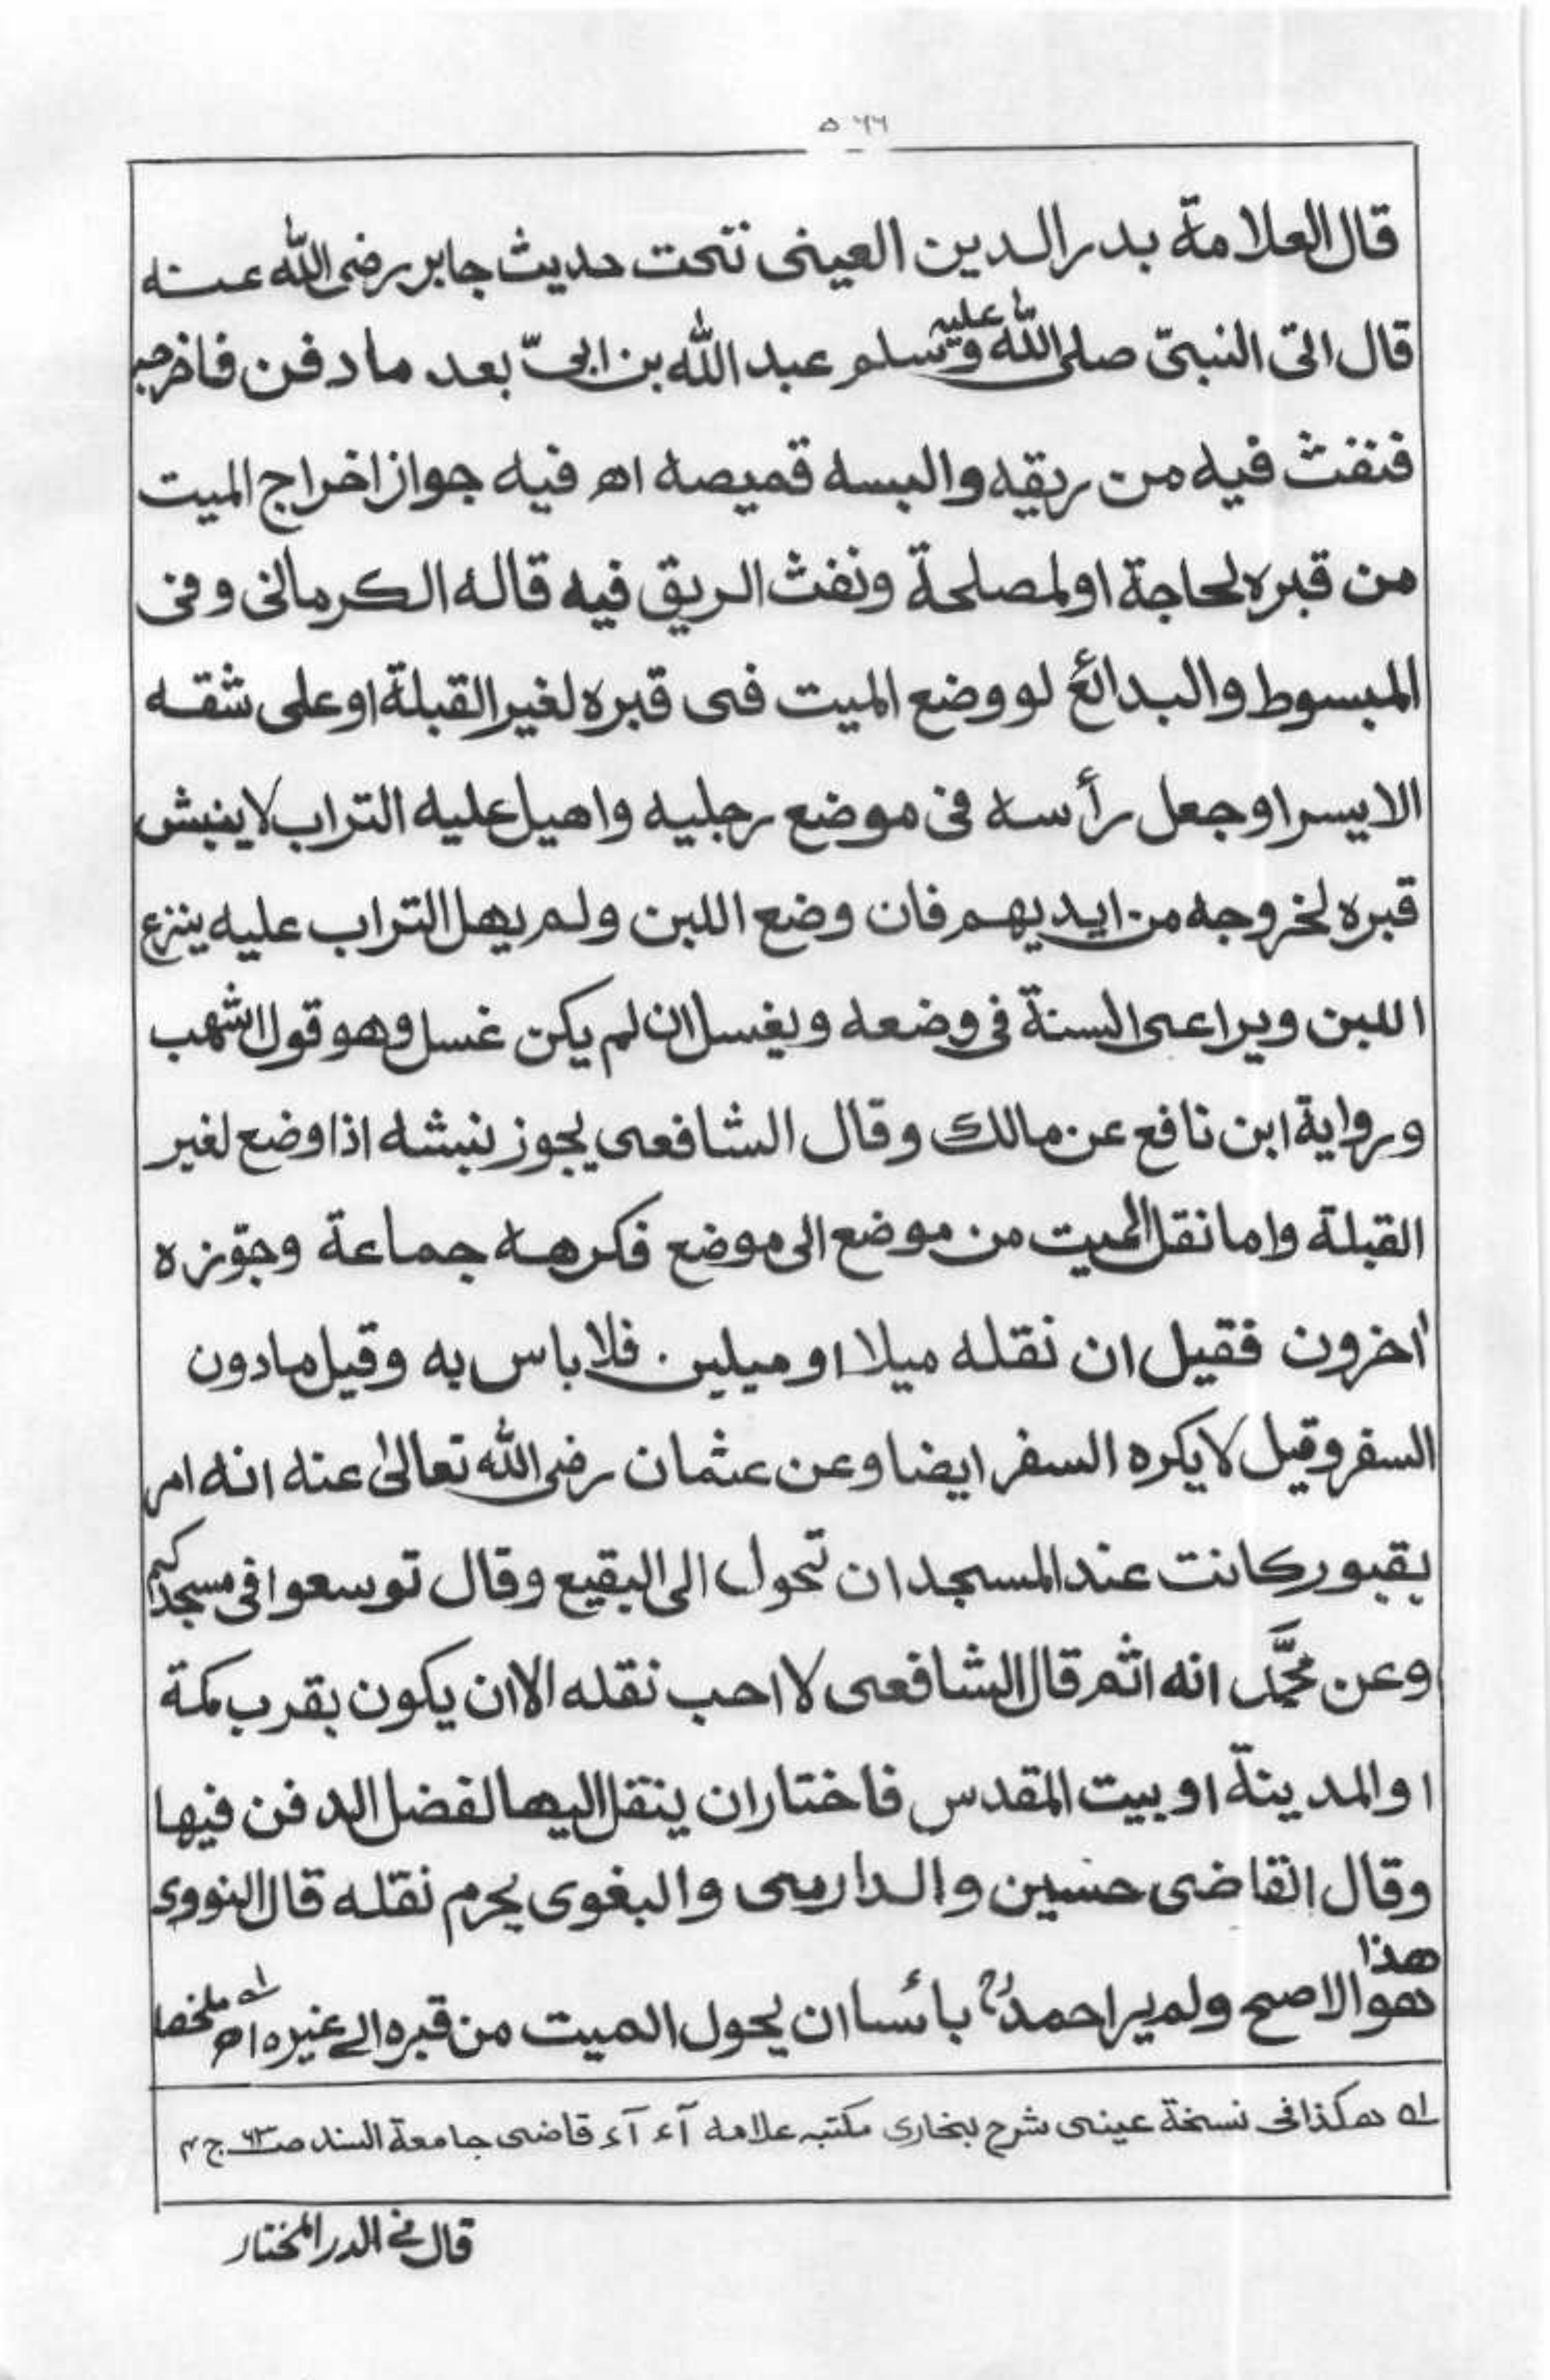 ۵۶۶
قال العلامة بدر الدين العينى تحت حديث جابر رضى الله عنه
قال اتى النبىّ صلى الله عليه وسلم عبد الله بن ابىّ بعد ما دفن فاخرجه
فنفث فيه من ريقه والبسه قميصه اھ فيه جواز اخراج الميت
من قبره لحاجة او لمصلحة ونفث الريق فيه قاله الكرمانى وفى
المبسوط والبدائع لو وضع الميت فى قبره لغير القبلة او على شقه
الايسر او جعل رأسه فى موضع رجليه واهيل عليه التراب لا ينبش
قبره لخروجه من ايديهم فان وضع اللبن ولم يهل التراب عليه ينزع
اللبن ويراعى السنة فى وضعه ويغسل ان لم يكن غسل وهو قول اشهب
ورواية ابن نافع عن مالك وقال الشافعى يجوز نبشه اذا وضع لغير
القبلة واما نقل الميت من موضع الى موضع فكرهه جماعة وجوّزه
اٰخرون فقيل ان نقله ميلا او ميلين فلا باس به وقيل ما دون
السفر وقيل لا يكره السفر ايضا وعن عثمان رضى الله تعالىٰ عنه انه امر
بقبور كانت عند المسجد ان تحول الى البقيع وقال توسعوا فى مسجدكم
وعن محمَّد انه اثم قال الشافعى لا احب نقله الا ان يكون بقرب مكة
او المدينة او بيت المقدس فاختار ان ينقل اليها لفضل الدفن فيها
وقال القاضى حسين والدارمى والبغوى يحرم نقله قال النووى
هذا هو الاصح ولم ير احمدؒ بأسا ان يحول الميت من قبره الى غيره اھ ملخصا ؎۱
؎۱ هكذا فى نسخة عينى شرح بخارى مكتبه علامه آء آء قاضى جامعة السند صـ۶۳ ج۴
قال فى الدر المختار